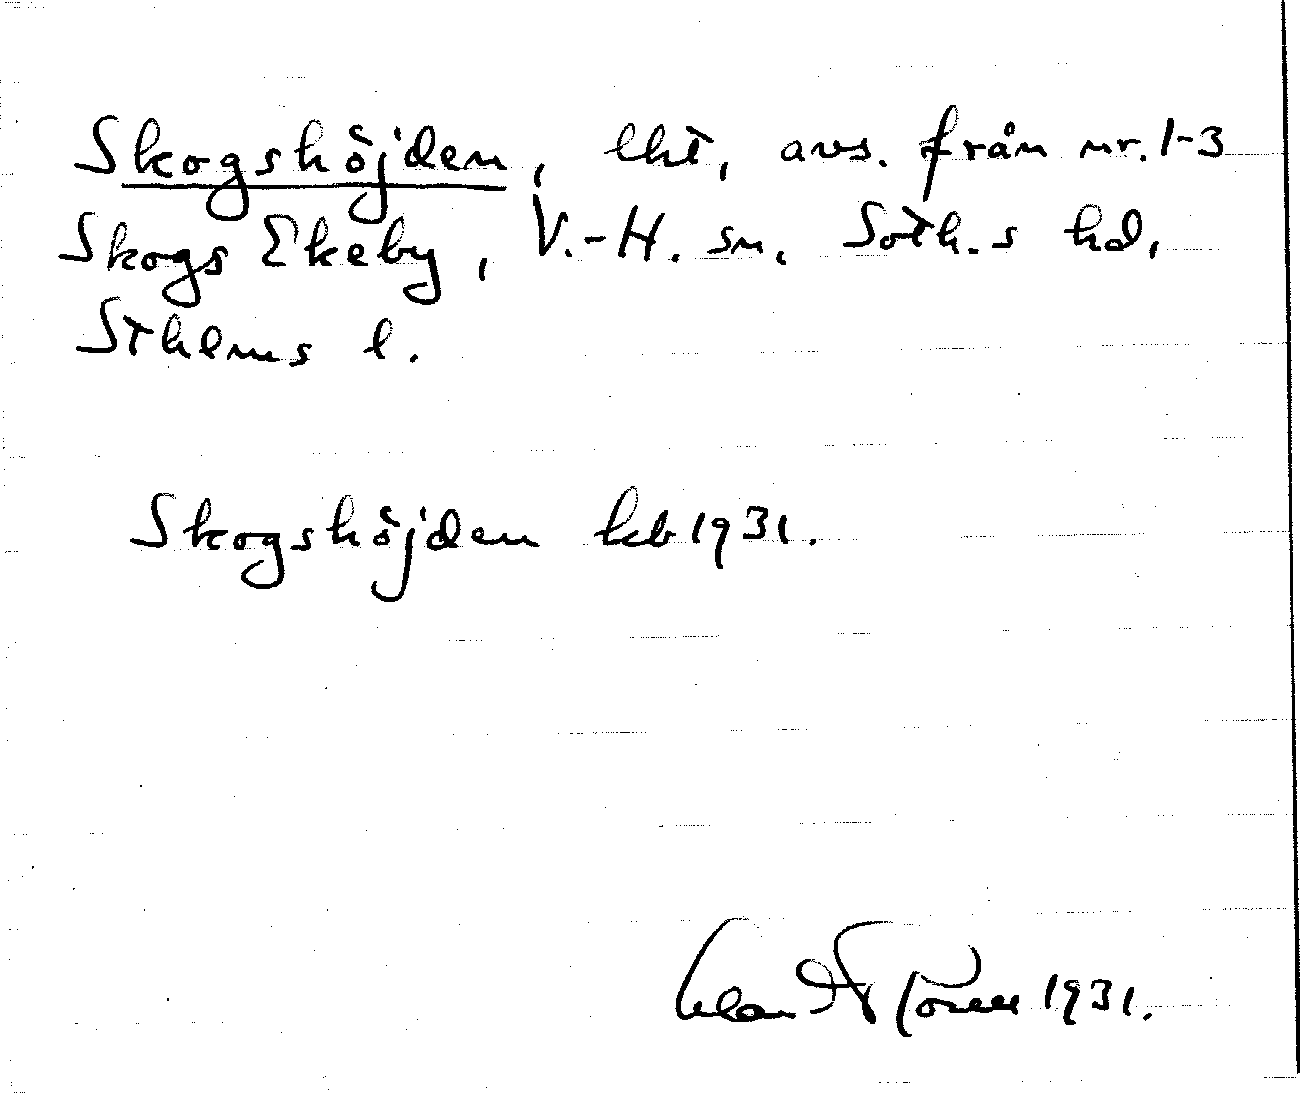 Skogshöjden, lht, avs. från nr. 1-3
Skogs Ekeby, V.-H. sn. Soth.s hd,
Sthlms l.
Skogshöjden kb 1931.
1931.